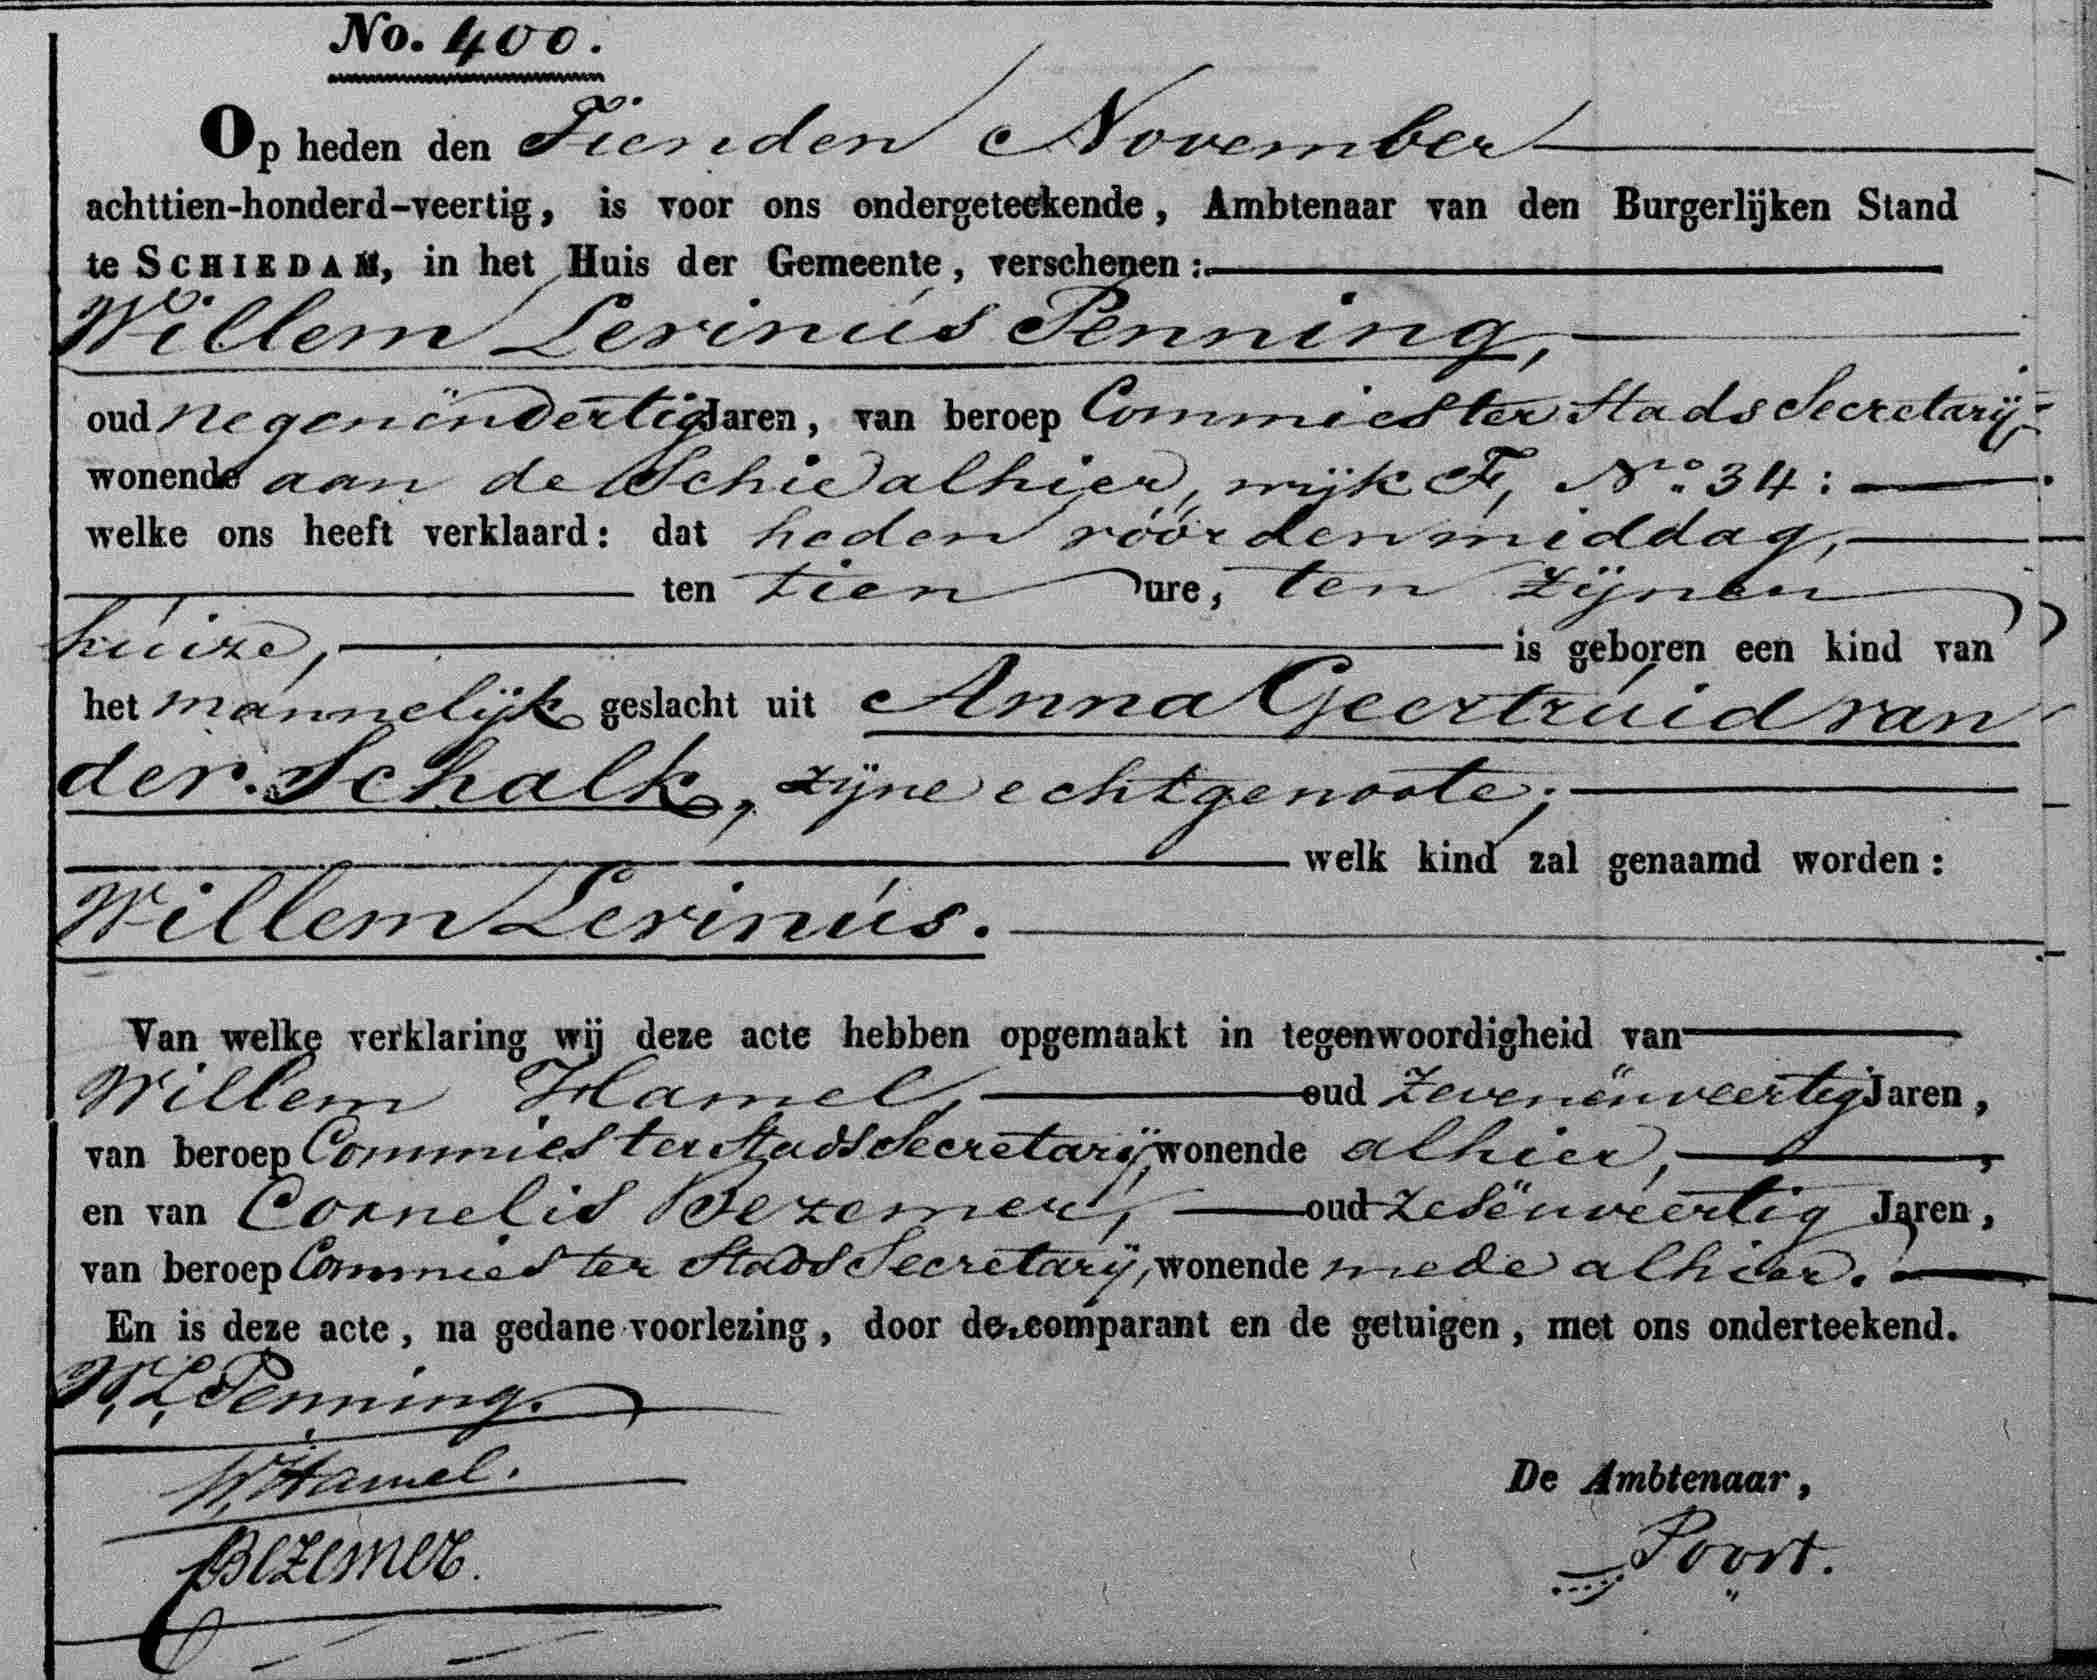 No. 400.
Op heden den Tienden November
achttien-honderd-veertig, is voor ons ondergeteekende, Ambtenaar van den Burgerlijken Stand
te SCHIEDAM, in het Huis der Gemeente, verschenen:
Willem Levinus Penning,
oud negenëndertig Jaren, van beroep Commies ter Stads Secretarij,
wonende aan de Schie alhier, wijk F, No. 34:
welke ons heeft verklaard: dat heden vóór den middag,
ten tien ure, ten zijnen
huize, is geboren een kind van
het mannelijk geslacht uit Anna Geertruid van
der Schalk, zijne echtgenoote;
welk kind zal genaamd worden:
Willem Levinus.
Van welke verklaring wij deze acte hebben opgemaakt in tegenwoordigheid van
Willem Hamel, oud zevenënveertig Jaren,
van beroep Commies ter Stads Secretarij, wonende alhier,
en van Cornelis Bezemer, oud zesënveertig Jaren,
van beroep Commies ter Stads Secretarij, wonende mede alhier.
En is deze acte, na gedane voorlezing, door de comparant en de getuigen, met ons onderteekend.
W. L. Penning.
W. Hamel.
De Ambtenaar,
CBezemer.
Poort.